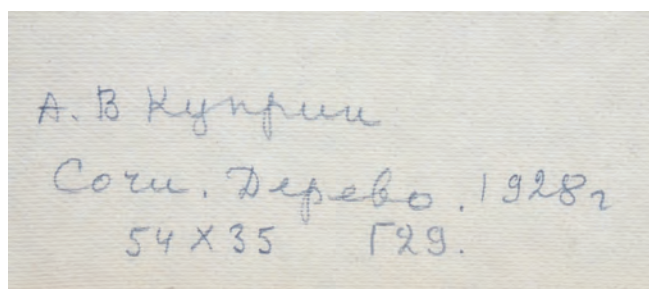 А. В Куприн
Сочи. Дерево. 1928г
54 X 35 Г29.